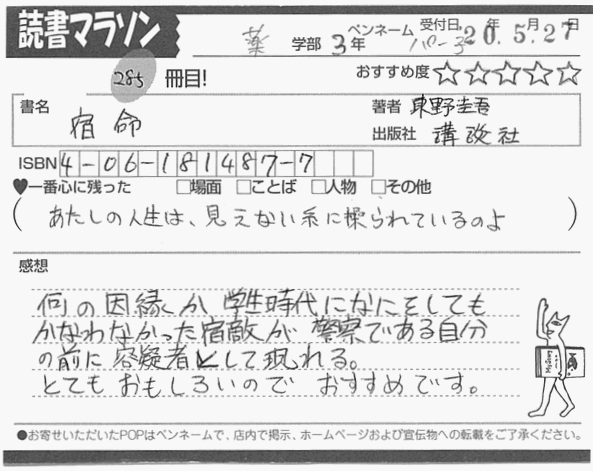 読書マラソン
薬 学部 3年 ペンネーム パー子 受付日 20年 5月 27日
285 冊目!
おすすめ度 ☆☆☆☆☆
書名 宿命
著者 東野圭吾
出版社 講談社
ISBN 4-06-181487-7
♥一番心に残った □場面 □ことば □人物 □その他
(あたしの人生は、見えない糸に操られているのよ)
感想
何の因縁か 学生時代になにをしても
かなわなかった宿敵が 警察である自分
の前に 容疑者として現れる。
とても おもしろいので おすすめです。
●お寄せいただいたPOPはペンネームで、店内で掲示、ホームページおよび宣伝物への転載をご了承ください。